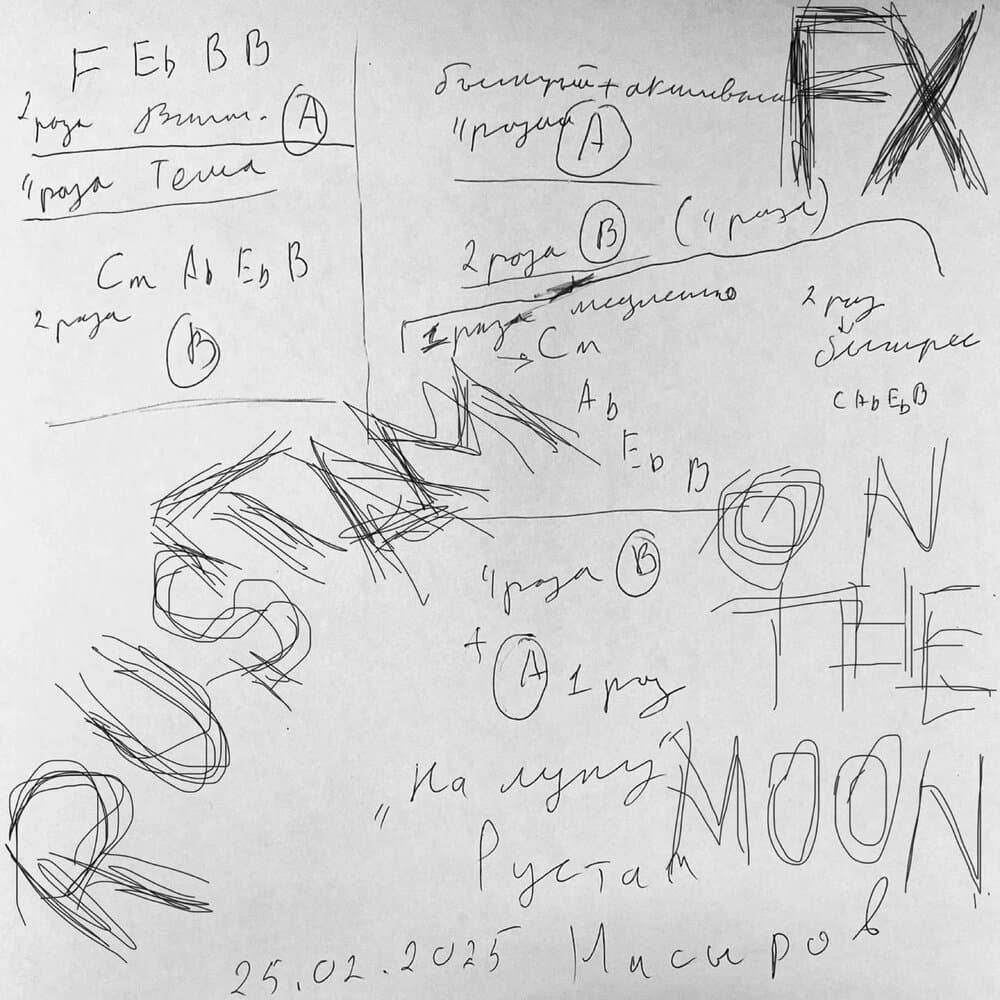 F Eb B B
2 раза Вступ. A
4 раза Тема
Cm Ab Eb B
2 раза
B
FX
быстрый +
A
2 раза B (4 раза)
1 раз медленно
→ Cm
Ab
Eb B
2 раз
↓
быстрее
C Ab Eb B
RUSTAM
ON
THE
MOON
4 раза B
+ A 1 раз
„На луну"
Рустам
25.02.2025 Насыров